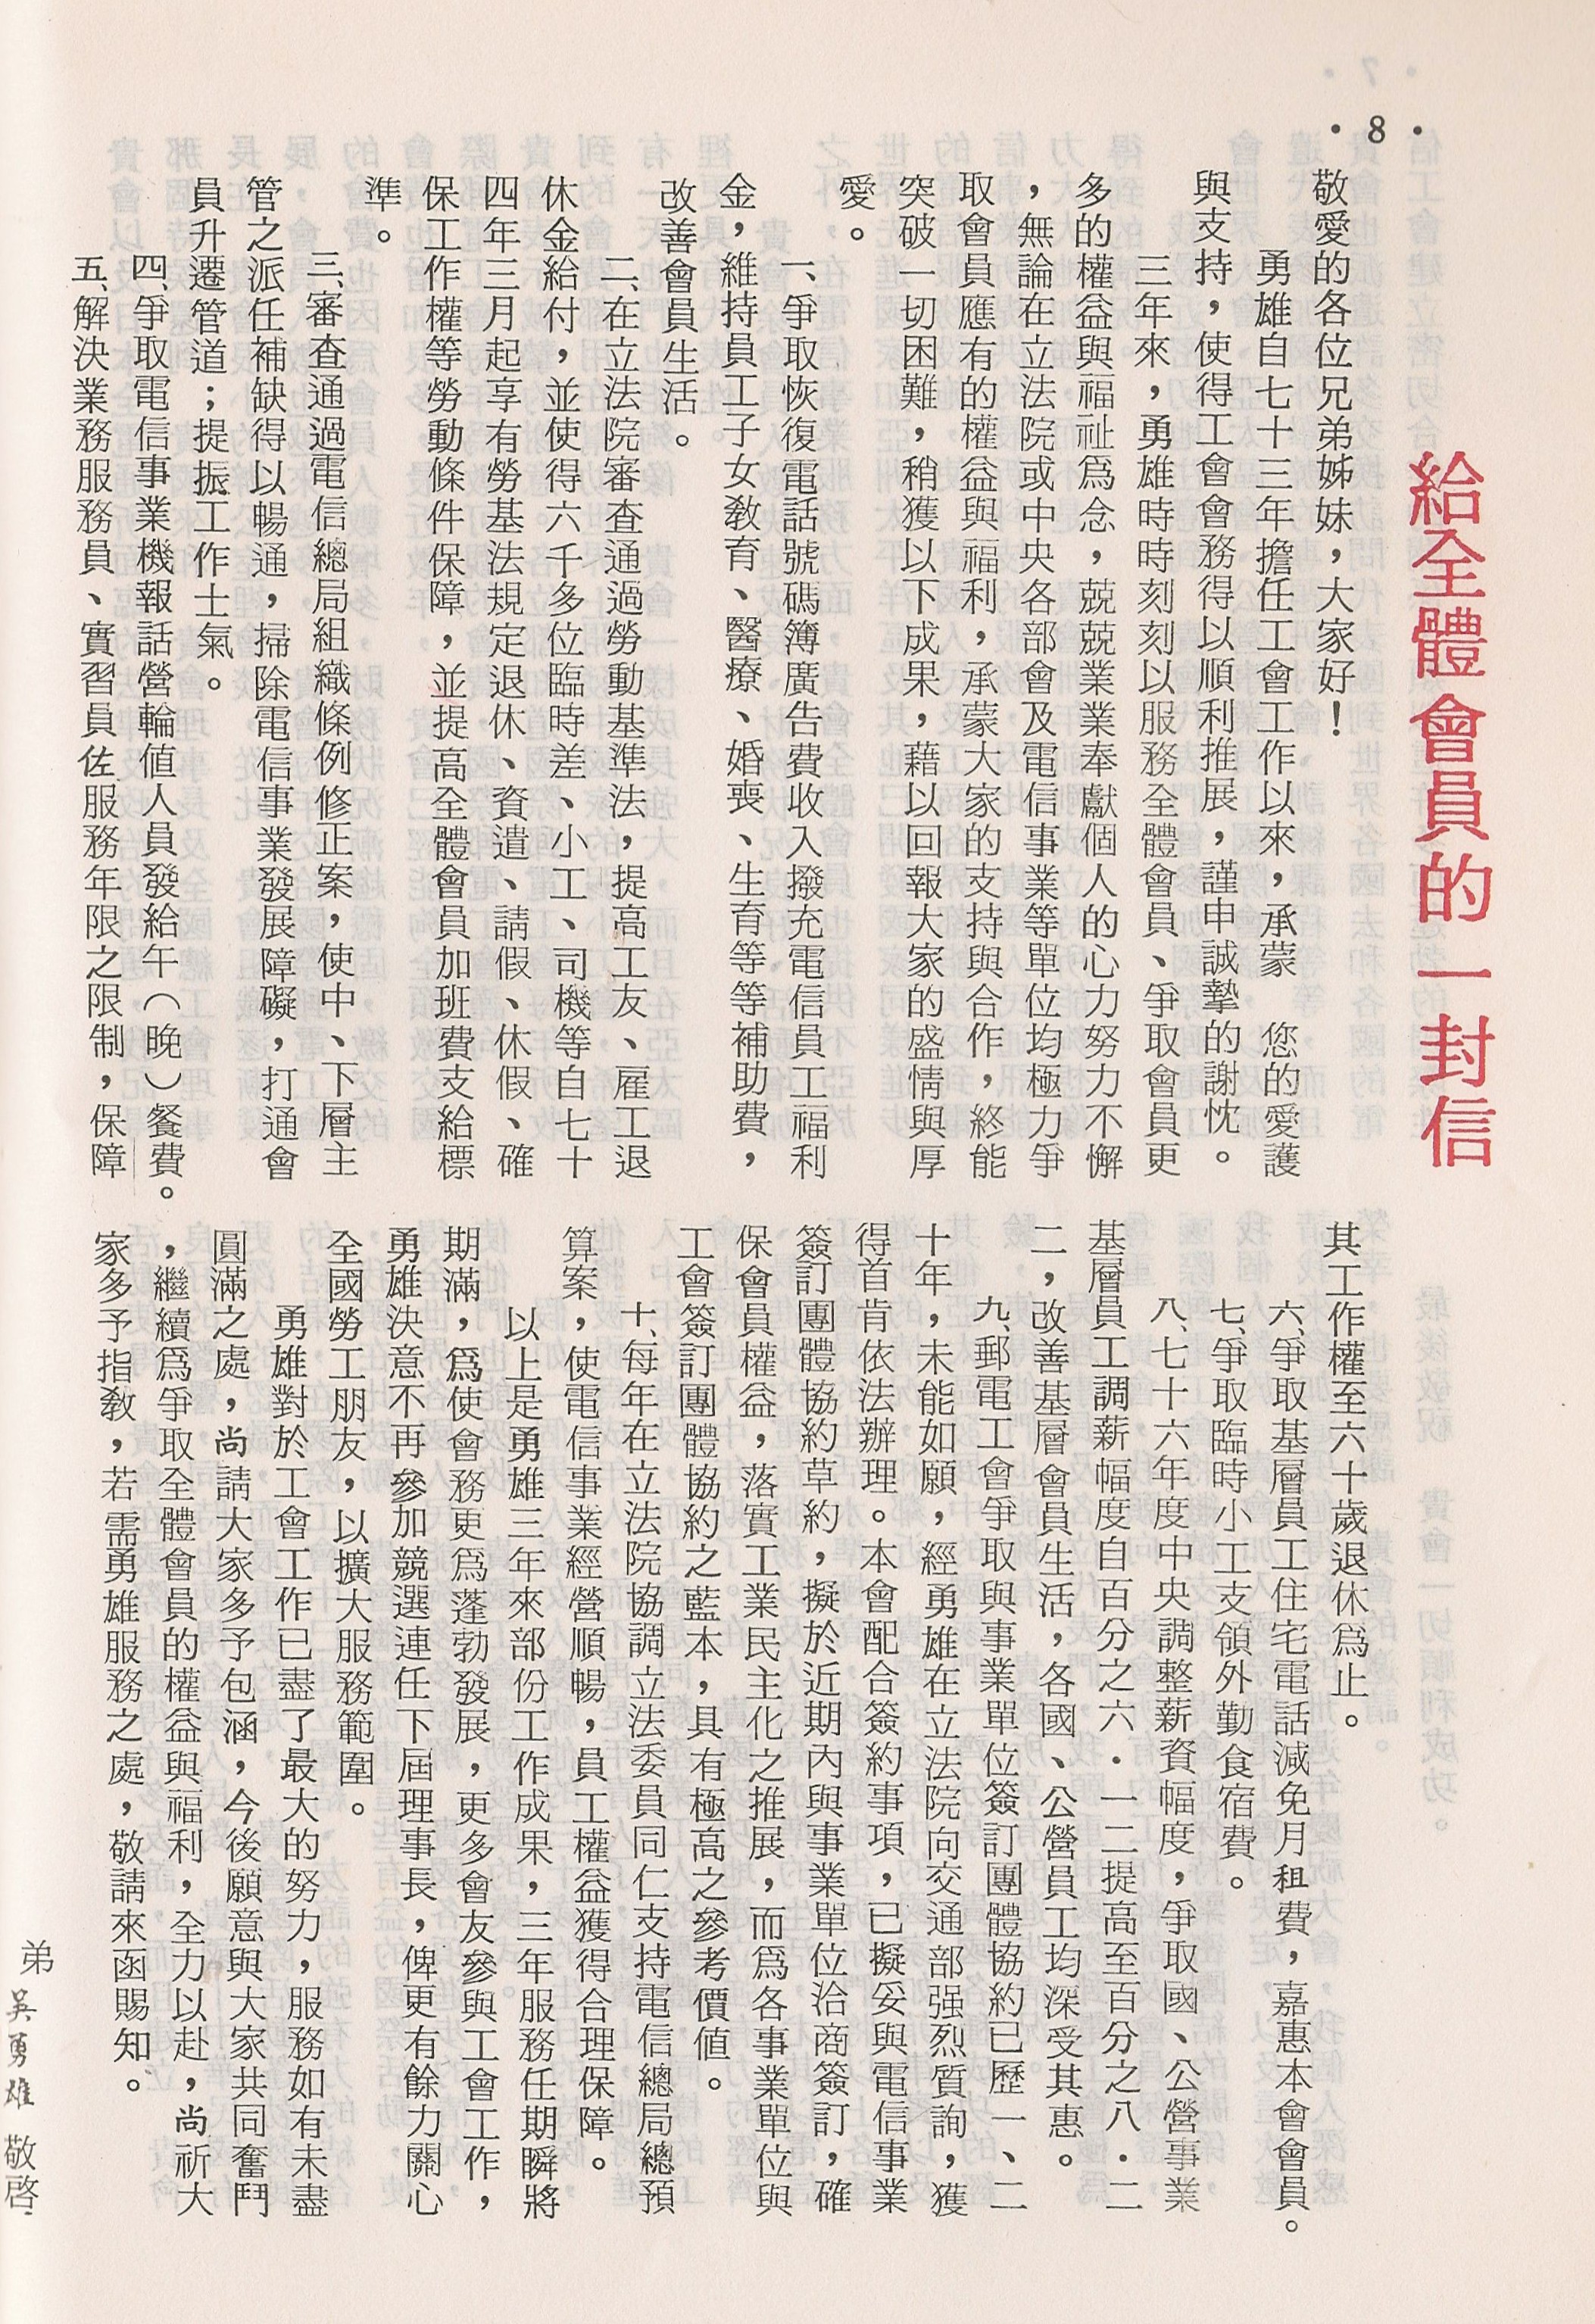 • 8 •
給全體會員的一封信
敬愛的各位兄弟姊妹，大家好！
勇雄自七十三年擔任工會工作以來，承蒙　您的愛護
與支持，使得工會會務得以順利推展，謹申誠摯的謝忱。
三年來，勇雄時時刻刻以服務全體會員、爭取會員更
多的權益與福祉爲念，兢兢業業奉獻個人的心力努力不懈
，無論在立法院或中央各部會及電信事業等單位均極力爭
取會員應有的權益與福利，承蒙大家的支持與合作，終能
突破一切困難，稍獲以下成果，藉以回報大家的盛情與厚
愛。
一、爭取恢復電話號碼簿廣告費收入撥充電信員工福利
金，維持員工子女教育、醫療、婚喪、生育等等補助費，
改善會員生活。
二、在立法院審查通過勞動基準法，提高工友、雇工退
休金給付，並使得六千多位臨時差、小工、司機等自七十
四年三月起享有勞基法規定退休、資遣、請假、休假、確
保工作權等勞動條件保障，並提高全體會員加班費支給標
準。
三、審查通過電信總局組織條例修正案，使中、下層主
管之派任補缺得以暢通，掃除電信事業發展障礙，打通會
員升遷管道；提振工作士氣。
四、爭取電信事業機報話營輪値人員發給午（晚）餐費。
五、解決業務服務員、實習員佐服務年限之限制，保障
其工作權至六十歲退休爲止。
六、爭取基層員工住宅電話減免月租費，嘉惠本會會員。
七、爭取臨時小工支領外勤食宿費。
八、七十六年度中央調整薪資幅度，爭取國、公營事業
基層員工調薪幅度自百分之六．一二提高至百分之八．二
二，改善基層會員生活，各國、公營員工均深受其惠。
九、郵電工會爭取與事業單位簽訂團體協約已歷一、二
十年，未能如願，經勇雄在立法院向交通部强烈質詢，獲
得首肯依法辦理。本會配合簽約事項，已擬妥與電信事業
簽訂團體協約草約，擬於近期內與事業單位洽商簽訂，確
保會員權益，落實工業民主化之推展，而爲各事業單位與
工會簽訂團體協約之藍本，具有極高之參考價値。
十、每年在立法院協調立法委員同仁支持電信總局總預
算案，使電信事業經營順暢，員工權益獲得合理保障。
以上是勇雄三年來部份工作成果，三年服務任期瞬將
期滿，爲使會務更爲蓬勃發展，更多會友參與工會工作，
勇雄決意不再參加競選連任下屆理事長，俾更有餘力關心
全國勞工朋友，以擴大服務範圍。
勇雄對於工會工作已盡了最大的努力，服務如有未盡
圓滿之處，尚請大家多予包涵，今後願意與大家共同奮鬥
，繼續爲爭取全體會員的權益與福利，全力以赴，尚祈大
家多予指教，若需勇雄服務之處，敬請來函賜知。
弟　吳勇雄　敬啓